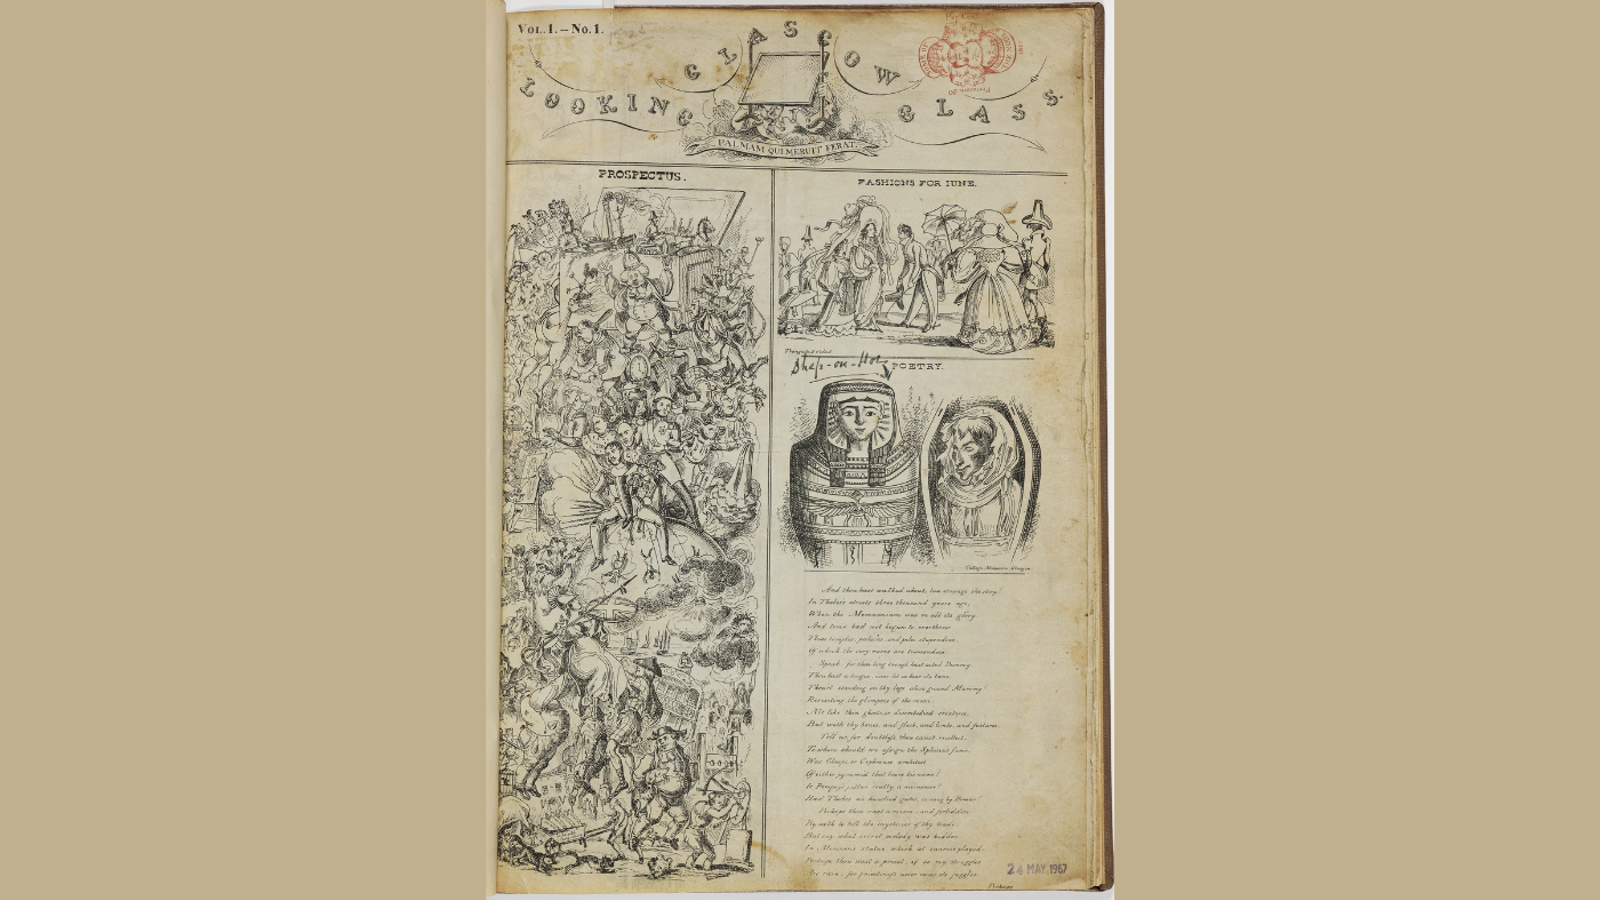 VOL. 1. – No. 1.
GLASGOW
LOOKING GLASS.
PALMAM QUI MERUIT FERAT.
PROSPECTUS.
FASHIONS FOR IUNE.
POETRY.
College Museum Glasgow
And thou hast walked about, how strange the story!
In Thebes's streets three thousand years ago,
When the Memnonium was in all its glory.
And time had not begun to overthrow
Those temples, palaces, and piles stupendous,
Of which the very ruins are tremendous.
Speak, for thou long enough hast acted Dummy.
Thou hast a tongue, come let us hear its tune.
Thou'rt standing on thy legs above ground Mummy!
Revisiting the glimpses of the moon,
Not like thin ghosts or disembodied creatures,
But with thy bones, and flesh, and limbs, and features.
Tell us, for doubtless thou canst recollect,
To whom should we assign the Sphinx's fame.
Was Cheops, or Cephrenes architect
Of either pyramid that bears his name?
Is Pompey's pillar really a misnomer?
Had Thebes an hundred gates, as sung by Homer?
Perhaps thou wast a mason, and forbidden
By oath to tell the mysteries of thy trade,
But say, what secret melody was hidden
In Memnon's statue which at sunrise played.
Perhaps thou wast a priest, if so my struggles
Are vain, for priestcraft never owns its juggles.
Perhaps
24 MAY 1967